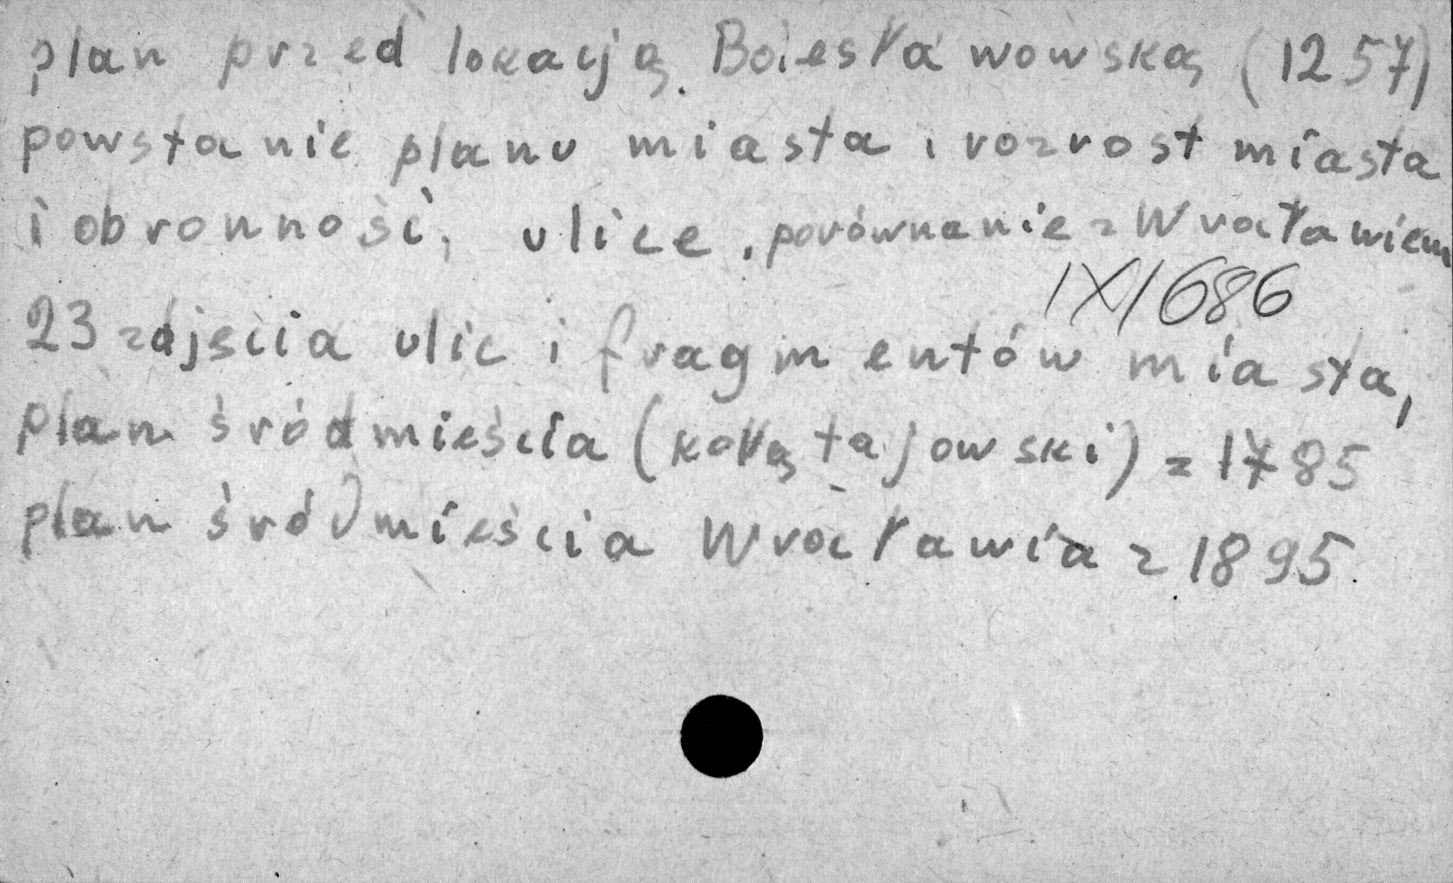 plan przed lokacją Bolesławowską (1257)
powstanie planu miasta i rozrost miasta
i obronności, ulice, porównanie z Wrocławiem
IX/686
23 zdjęcia ulic i fragmentów miasta,
plan śródmieścia (kołłątajowski) z 1785
plan śródmieścia Wrocławia z 1895.